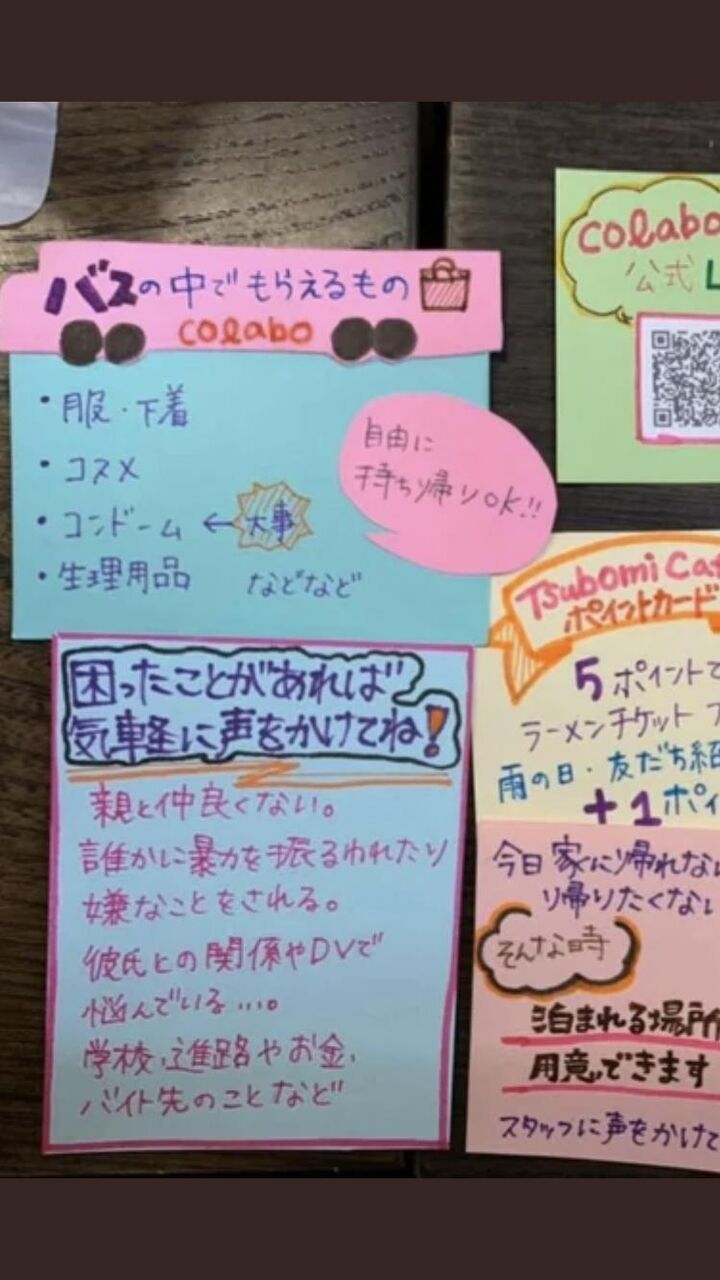 バスの中でもらえるもの
colabo
・服・下着
・コスメ
・コンドーム ← 大事
・生理用品 などなど
自由に
持ち帰りOK!!
困ったことがあれば
気軽に声をかけてね!
親と仲良くない。
誰かに暴力を振るわれたり
嫌なことをされる。
彼氏との関係やDVで
悩んでいる…。
学校、進路やお金、
バイト先のことなど
colabo
公式 L
Tsubomi Caf
ポイントカード
5ポイントで
ラーメンチケット
雨の日・友だち紹
+1ポイ
今日家に帰れない
り帰りたくない
そんな時
泊まれる場所
用意できます
スタッフに声をかけて